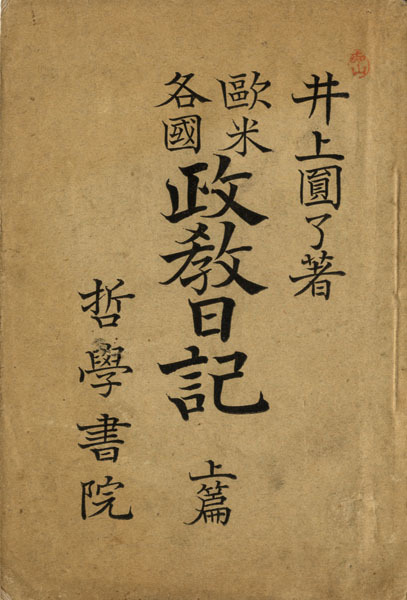 井上圓了著
歐米
各國
政教日記
上篇
哲學書院